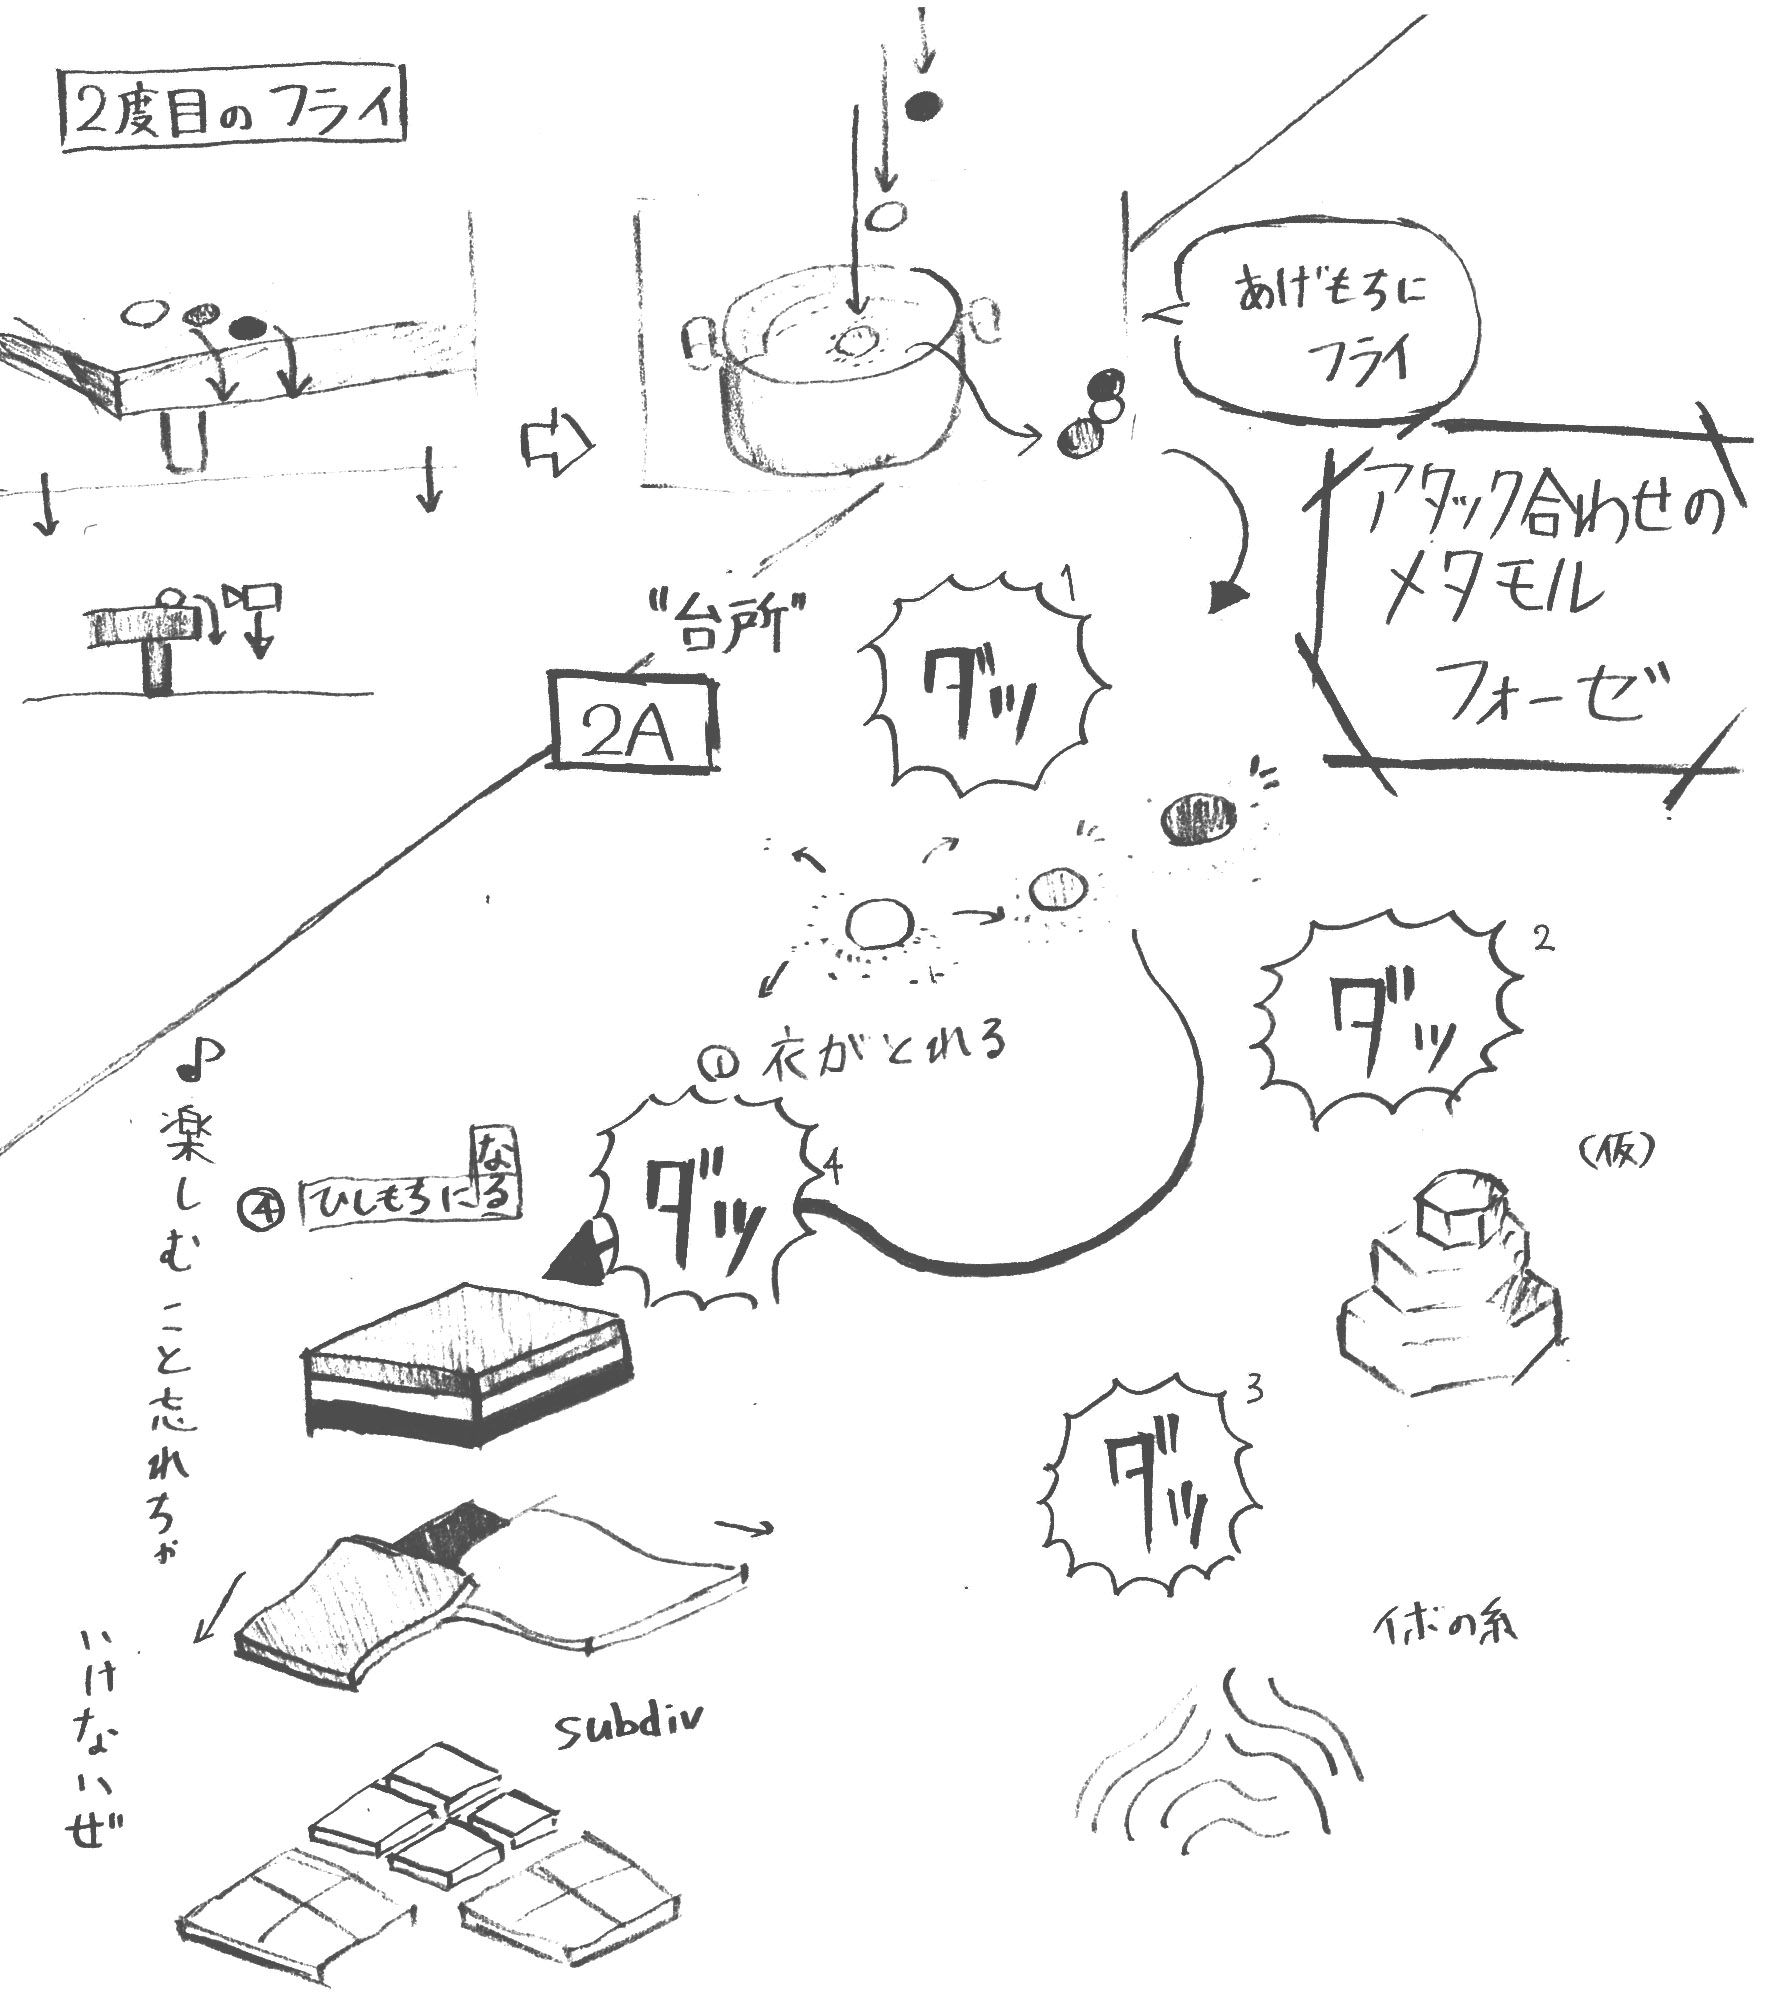 2度目のフライ
あげもちに
フライ
アタック合わせの
メタモル
フォーゼ
"台所"
2A
ダッ
1
① 衣がとれる
ダッ
2
(仮)
ダッ
3
イボの糸
ダッ
4
④ ひしもちになる
♪楽しむこと忘れちゃ
いけないぜ
subdiv